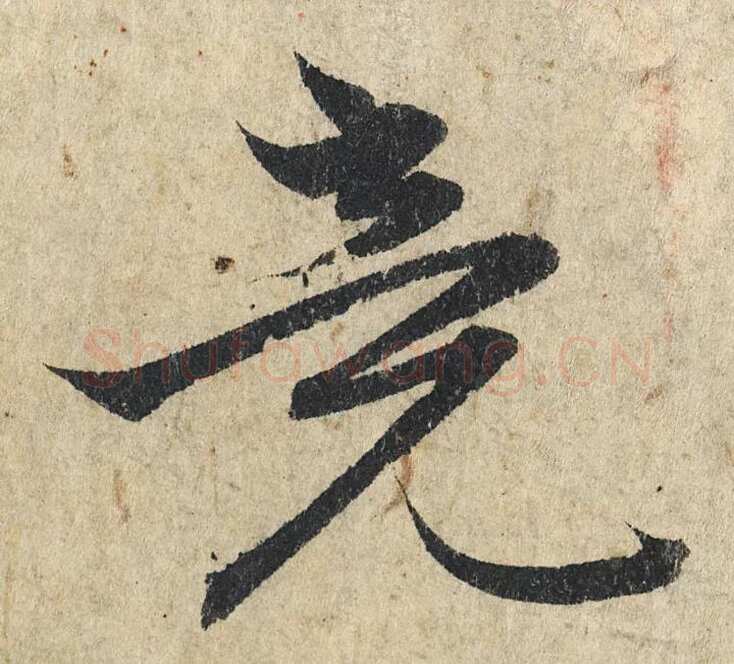 堯
Shufawang.CN